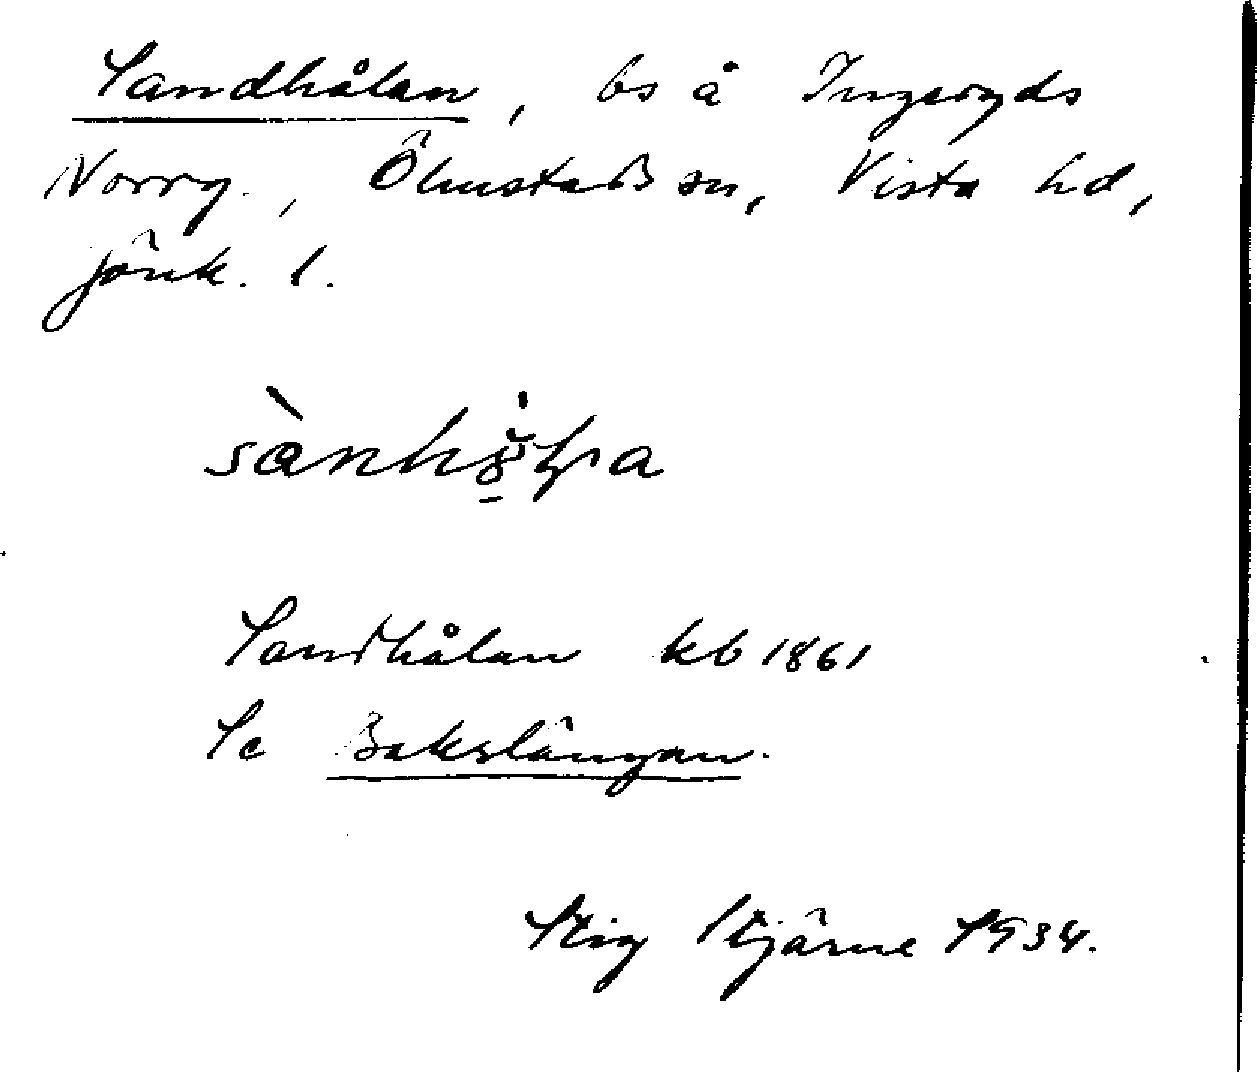 Sandhålan, bs å Ingeryds
Norrg., Ölmstads sn, Vista hd,
Jönk. l.
Sandhålan kb 1861
Se Bakslängan.
Stig Stjärne 1934.